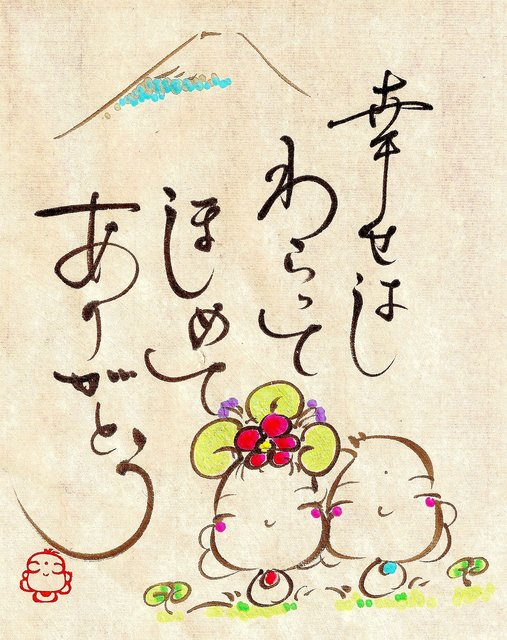 幸せは
わらって
ほめて
ありがとう